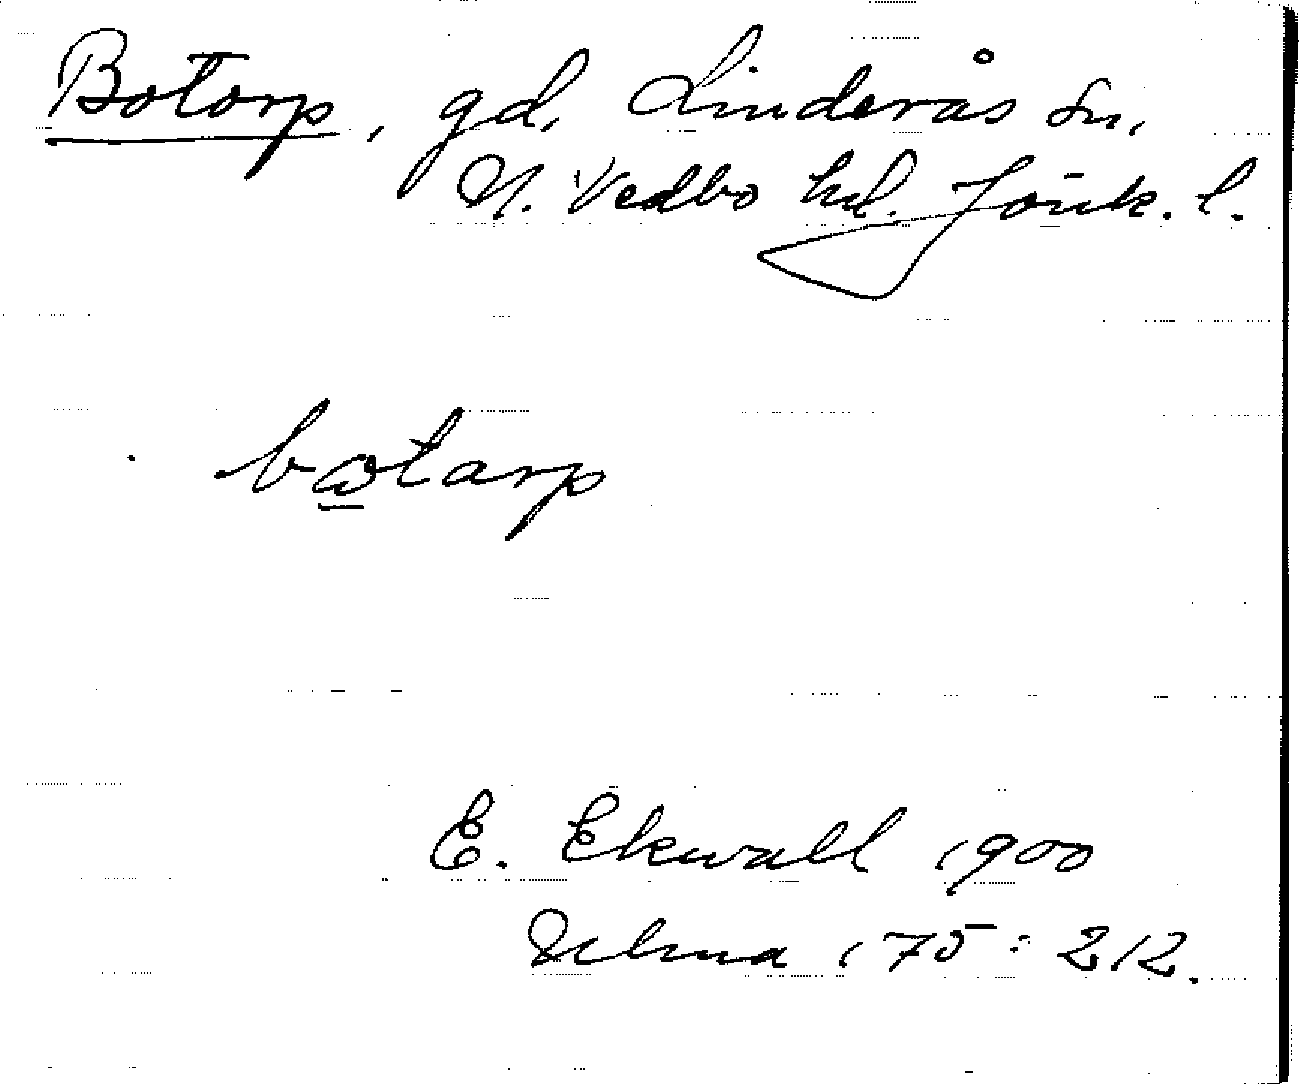 Botorp, gd, Linderås sn,
N. Vedbo hd. Jönk. l.
bωtarp
E. Ekwall 1900
Ulma 175:212.